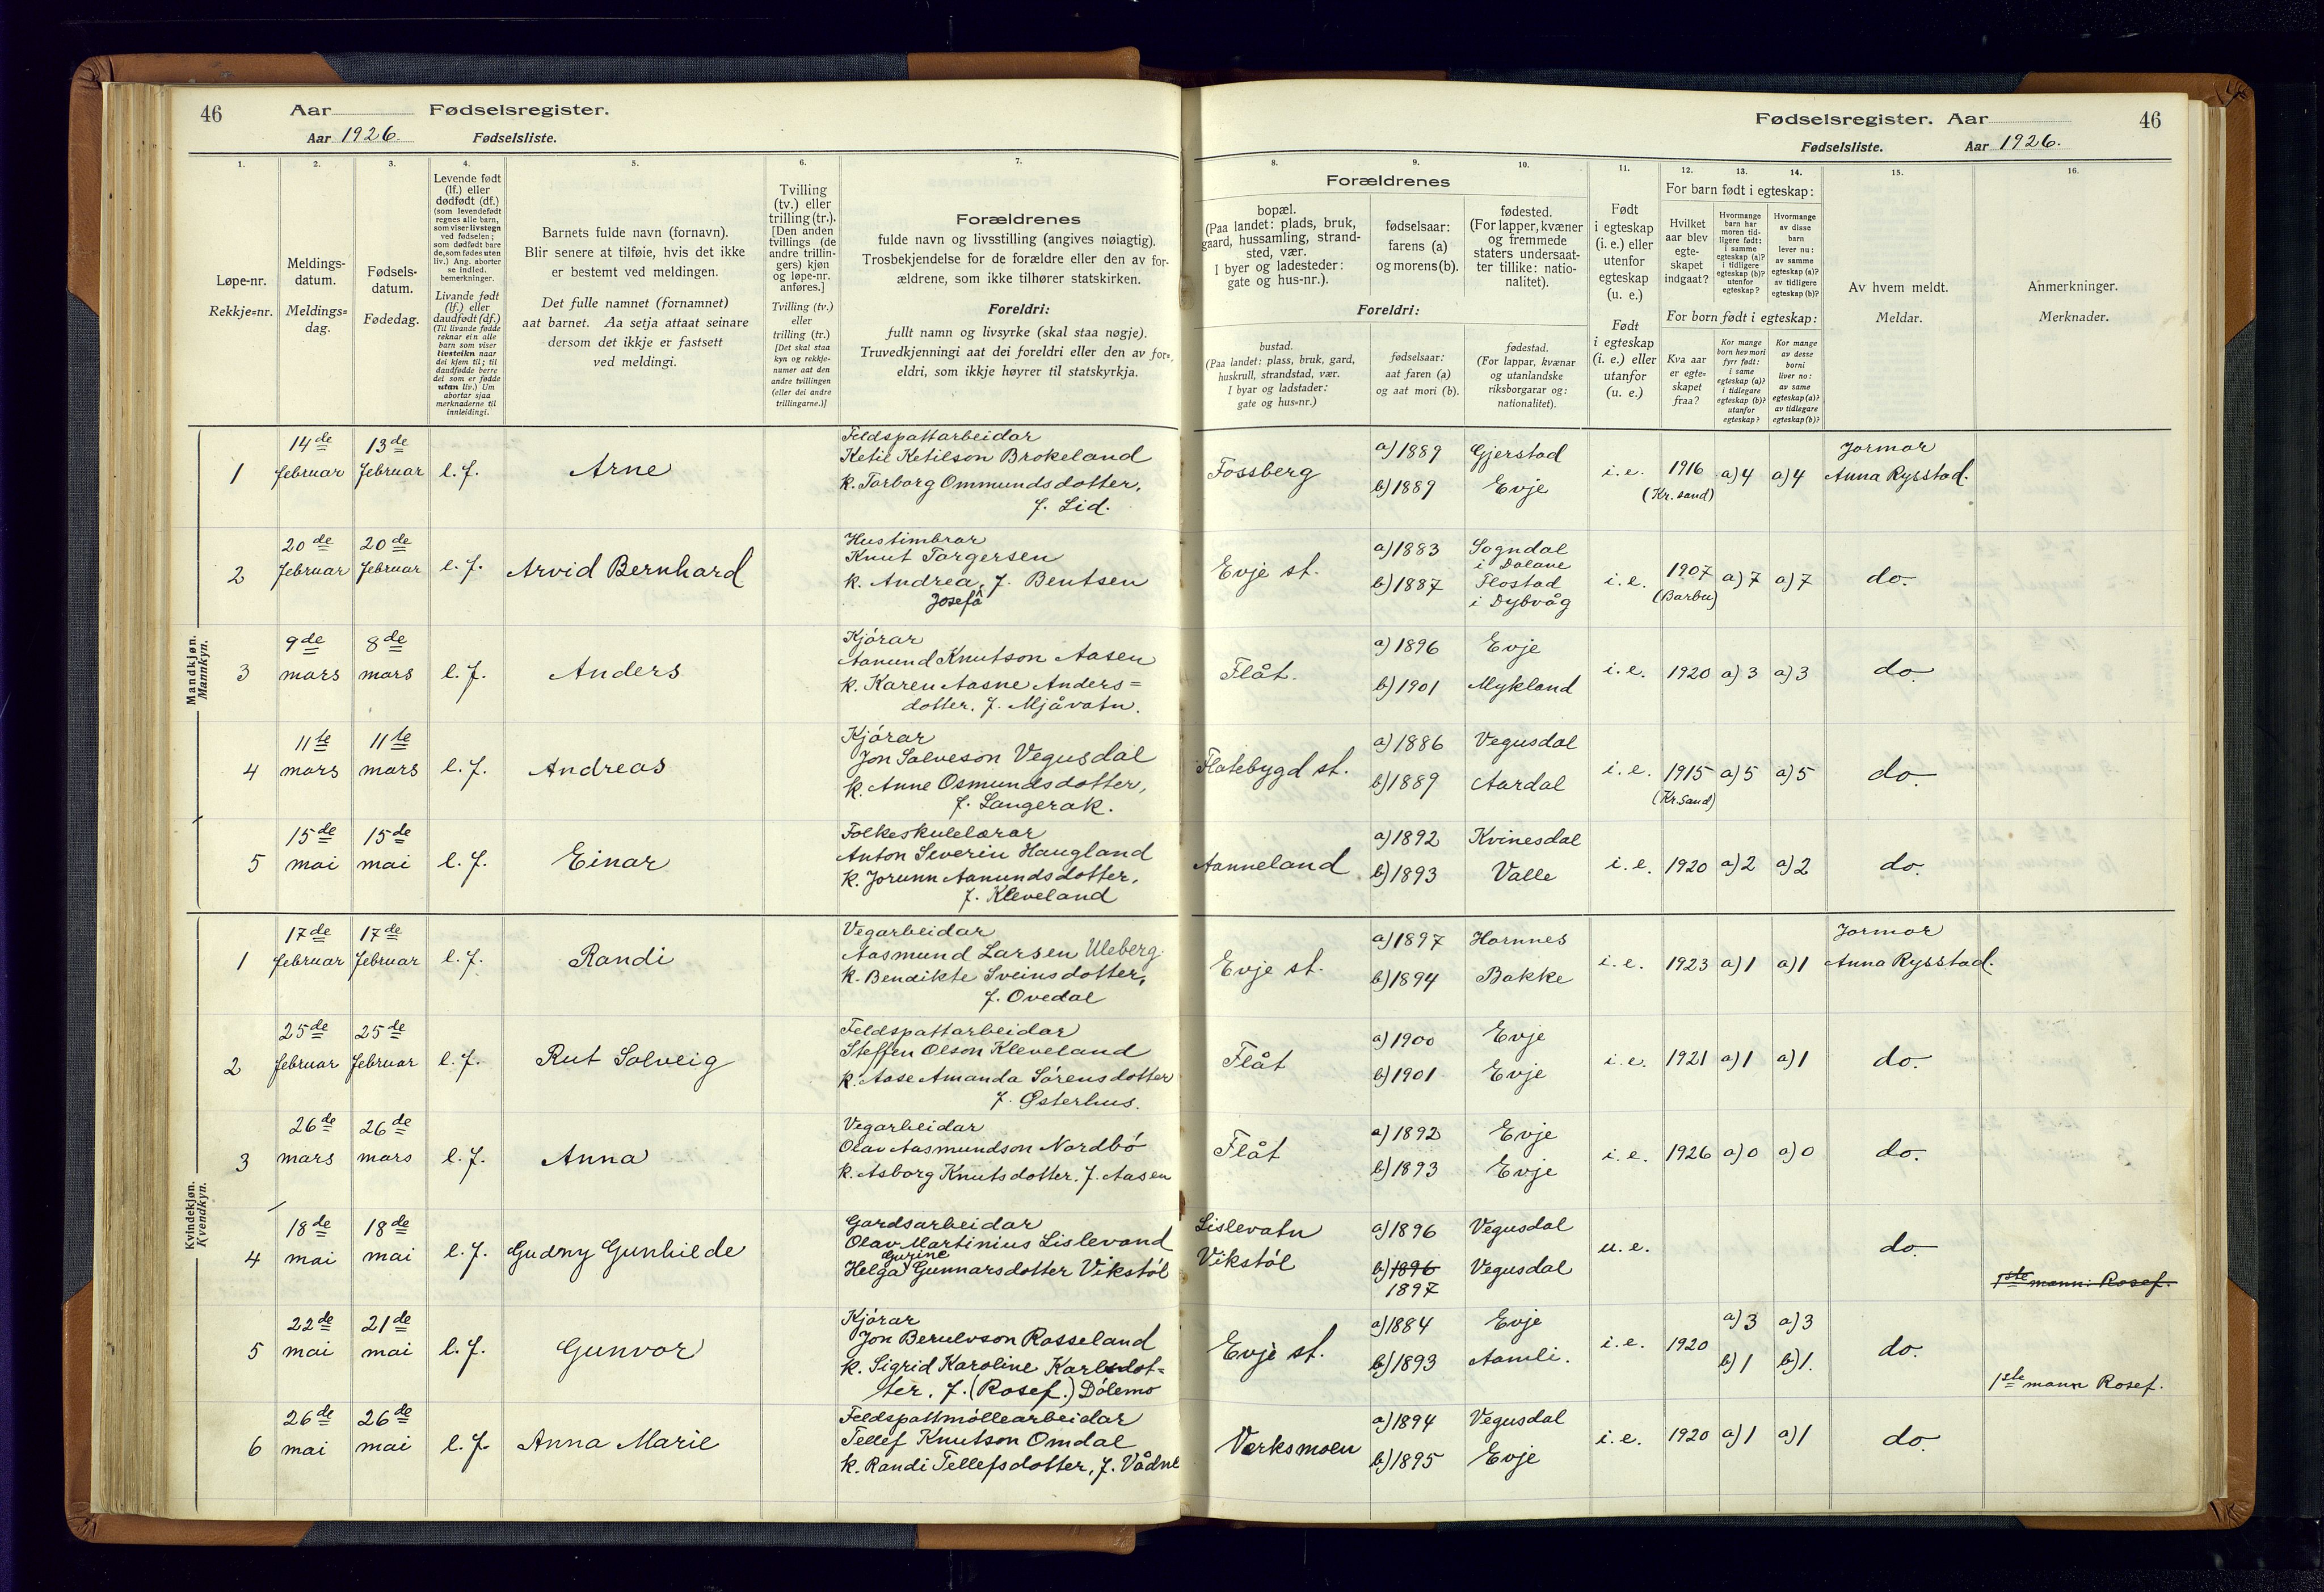 46 Aar Fødselsregister.
Aar 1926. Fødselsliste.
Fødselsregister. Aar 46
Fødselsliste. Aar 1926.
1. 2. 3. 4. 5. 6. 7.
Løpe-nr.
Rekkje=nr.
Meldings-
datum.
Meldings=
dag.
Fødsels-
datum.
Fødedag.
Levende født
(lf.) eller
dødfødt (df.)
(som levendefødt
regnes alle barn,
som viser livstegn
ved fødselen;
som dødfødt bare
de, som fødes uten
liv.) Ang. aborter
se indled.
bemerkninger.
Livande født
(lf.) eller
daudfødt (df.)
(Til livande fødde
reknar ein alle
barn som viser
livsteikn naar
dei kjem til; til
daudfødde berre
dei som er fødde
utan liv.) Um
abortar sjaa
merknaderne til
innleidingi.
Barnets fulde navn (fornavn).
Blir senere at tilføie, hvis det ikke
er bestemt ved meldingen.
Det fulle namnet (fornamnet)
aat barnet. Aa setja attaat seinare
dersom det ikkje er fastsett
ved meldingi.
Tvilling
(tv.) eller
trilling (tr.).
[Den anden
tvillings (de
andre trillin-
gers) kjøn
og løpe-nr.
anføres.]
Tvilling (tv.)
eller
trilling (tr.)
[Det skal staa
kyn og rekkje-
numer aat den
andre tvillingen
(eller dei andre
trillingarne.)]
Forældrenes
fulde navn og livsstilling (angives nøiagtig).
Trosbekjendelse for de forældre eller den av for-
ældrene, som ikke tilhører statskirken.
Foreldri:
fullt namn og livsyrke (skal staa nøgje).
Truvedkjenningi aat dei foreldri eller den av for=
eldri, som ikkje høyrer til statskyrkja.
8. 9. 10. 11. 12. 13. 14. 15. 16.
Forældrenes
bopæl.
(Paa landet: plads, bruk,
gaard, hussamling, strand-
sted, vær.
I byer og ladesteder:
gate og hus-nr.).
fødselsaar:
farens (a)
og morens (b).
fødested.
(For lapper, kvæner
og fremmede
staters undersaat-
ter tillike: natio-
nalitet).
Foreldri:
bustad.
(Paa landet: plass, bruk, gard,
huskrull, strandstad, vær.
I byar og ladstader:
gate og hus=nr.)
fødselsaar:
aat faren (a)
og aat mori (b).
fødestad.
(For lappar, kvænar
og utanlandske
riksborgarar og:
nationalitet).
Født
i egteskap
(i. e.) eller
utenfor
egteskap
(u. e.)
Født
i egteskap
(i. e.) eller
utanfor
(u. e.)
For barn født i egteskap:
Hvilket
aar blev
egte-
skapet
indgaat?
Hvormange
barn har
moren tid-
ligere født:
i samme
egteskap (a)?
i tidligere
egteskap (b)?
utenfor
egteskap?
Hvormange
av disse
barn
lever nu:
av samme
egteskap (a)?
av tidligere
egteskap (b)?
For born født i egteskap:
Kva aar
er egte=
skapet
fraa?
Kor mange
born hev mori
fyrr født:
i same
egteskap (a)?
i tidlegare
egteskap (b)?
utanfor
egteskap?
Kor mange
av desse
borni
liver no:
av same
egteskap (a)?
av tidlegare
egteskap (b)?
Av hvem meldt.
Meldar.
Anmerkninger.
Merknader.
Mandkjøn.
Mannkyn.
1 14de februar 13de februar l.f. Arne
Feldspattarbeidar
Ketil Ketilson Brokeland
k. Torborg Ommundsdotter,
f. Lid.
Fossberg a) 1889 Gjerstad i.e. 1916 a) 4 a) 4 Jormor
b) 1889 Evje (Kr. sand) Anna Rysstad.
2 20de februar 20de februar l.f. Arvid Bernhard
Hustimbrar
Knut Torgersen
k. Andrea, f. Bentsen
Josefa
Evje st. a) 1883 Sogndal
i Dalane
b) 1887 Flostad i.e. 1907 a) 7 a) 7 do.
i Dybvåg (Barbu)
3 9de mars 8de mars l.f. Anders
Kjörar
Aanund Knutson Aasen
k. Karen Aasne Anders=
dotter, f. Mjåvatn.
Flåt. a) 1896 Evje i.e. 1920 a) 3 a) 3 do.
b) 1901 Mykland
4 11te mars 11te mars l.f. Andreas
Kjörar
Jon Salveson Vegusdal
k. Anne Osmundsdotter,
f. Langerak.
Flatebygd st. a) 1886 Vegusdal i.e. 1915 a) 5 a) 5 do.
b) 1889 Aardal (Kr. Sand)
5 15de mai 15de mai l.f. Einar
Folkeskulelærar
Anton Severin Haugland
k. Jorunn Aanundsdotter,
f. Kleveland
Aanneland a) 1892 Kvinesdal i.e. 1920 a) 2 a) 2 do.
b) 1893 Valle
Kvindekjøn.
Kvendkyn.
1 17de februar 17de februar l.f. Randi
Vegarbeidar
Aasmund Larsen Uleberg
k. Bendikte Sveinsdotter,
f. Ovedal
Evje st. a) 1897 Hornnes i.e. 1923 a) 1 a) 1 Jormor
b) 1894 Bakke Anna Rysstad.
2 25de februar 25de februar l.f. Rut Solveig
Feldspattarbeidar
Steffen Olson Kleveland
k. Aase Amanda Sörensdotter
f. Østerhus.
Flåt a) 1900 Evje i.e. 1921 a) 1 a) 1 do.
b) 1901 Evje
3 26de mars 26de mars l.f. Anna
Vegarbeidar
Olav Aasmundson Nordbö
k. Asborg Knutsdotter. f. Aasen
Flåt a) 1892 Evje i.e. 1926 a) 0 a) 0 do.
b) 1893 Evje
4 18de mai 18de mai l.f. Gudny Gunhilde
Gardsarbeidar
Olav Martinius Lislevand
Gurine
Helga Gunnarsdotter Vikstöl
Lislevatn a) 1896 Vegusdal u.e. do.
Vikstöl b) 1896 Vegusdal
1897
1ste mann: Rosef.
5 22de mai 21de mai l.f. Gunvor
Kjörar
Jon Berulvson Rosseland
k. Sigrid Karoline Karlsdot=
ter, f. (Rosef.) Dölemo
Evje st. a) 1884 Evje i.e. 1920 a) 3 a) 3 do.
b) 1893 Aamli. b) 1 b) 1.
1ste mann Rosef.
6 26de mai 26de mai l.f. Anna Marie
Feldspattmöllearbeidar
Tellef Knutson Omdal
k. Randi Tellefsdotter, f. Vådne
Verksmoen a) 1894 Vegusdal i.e. 1920 a) 1 a) 1 do.
b) 1895 Evje